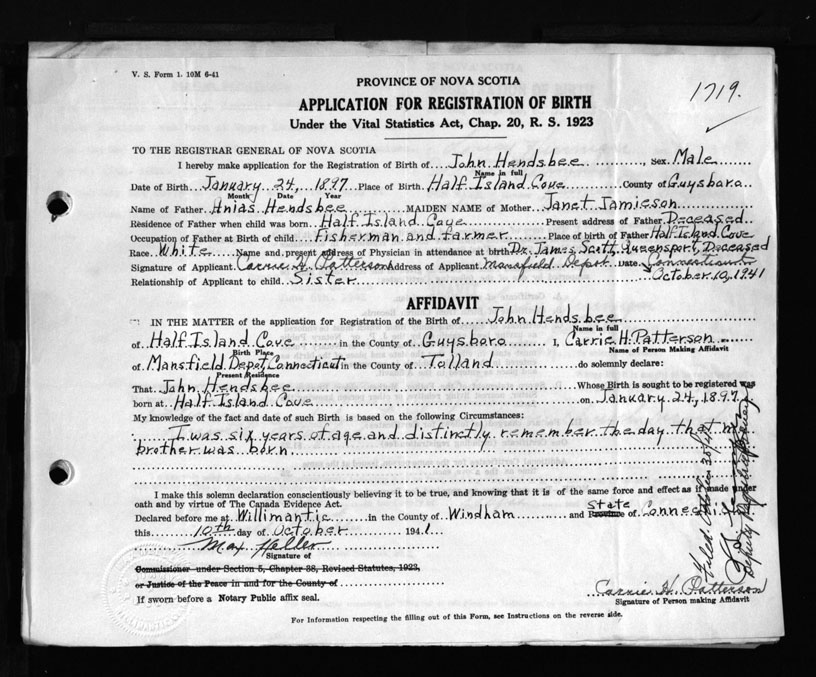 V. S. Form 1. 10M 6-41
PROVINCE OF NOVA SCOTIA
1719.
APPLICATION FOR REGISTRATION OF BIRTH
Under the Vital Statistics Act, Chap. 20, R. S. 1923
TO THE REGISTRAR GENERAL OF NOVA SCOTIA
I hereby make application for the Registration of Birth of John Hendsbee, sex Male
Name in full
Date of Birth January 24, 1897 Place of Birth Half Island Cove County of Guysboro
Month Date Year
Name of Father Anias Hendsbee MAIDEN NAME of Mother Janet Jamieson
Residence of Father when child was born Half Island Cove Present address of Father Deceased
Occupation of Father at Birth of child Fisherman and farmer Place of birth of Father Half Island Cove
Race White Name and present address of Physician in attendance at birth Dr. James Scott, Queensport, Deceased
Signature of Applicant Carrie H Patterson Address of Applicant Mansfield Depot Date Connecticut
October 10, 1941
Relationship of Applicant to child Sister
AFFIDAVIT
IN THE MATTER of the application for Registration of the Birth of John Hendsbee
Name in full
of Half Island Cove in the County of Guysboro I, Carrie H. Patterson
Birth Place Name of Person Making Affidavit
of Mansfield Depot, Connecticut in the County of Tolland do solemnly declare:
Present Residence
That John Hendsbee Whose Birth is sought to be registered was
born at Half Island Cove on January 24, 1897
My knowledge of the fact and date of such Birth is based on the following Circumstances:
I was six years of age and distinctly remember the day that my
brother was born.
I make this solemn declaration conscientiously believing it to be true, and knowing that it is of the same force and effect as if made under
oath and by virtue of The Canada Evidence Act.
State
Declared before me at Willimantic in the County of Windham and Province of
this 10th day of October 1941
Max Heller
Signature of
Commissioner under Section 5, Chapter 38, Revised Statutes, 1923,
or Justice of the Peace in and for the County of
Carrie H. Patterson
If sworn before a Notary Public affix seal.
Signature of Person making Affidavit
For Information respecting the filling out of this Form, see Instructions on the reverse side.
Filed October
Deputy Registrar General